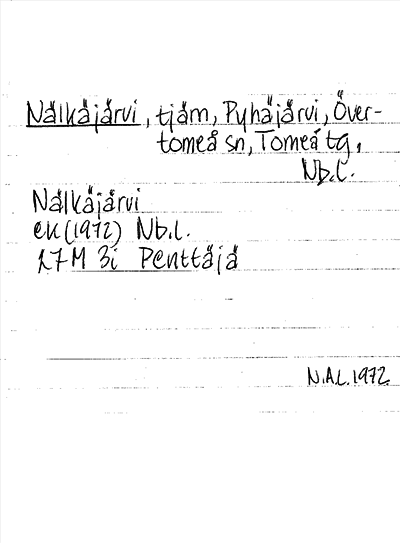 Nälkäjärvi, tjärn, Pyhäjärvi, Över-
torneå sn, Torneå tg,
Nb.l.
Nälkäjärvi
ek (1972) Nb.l.
27M 3i Penttäjä
N.A.L. 1972